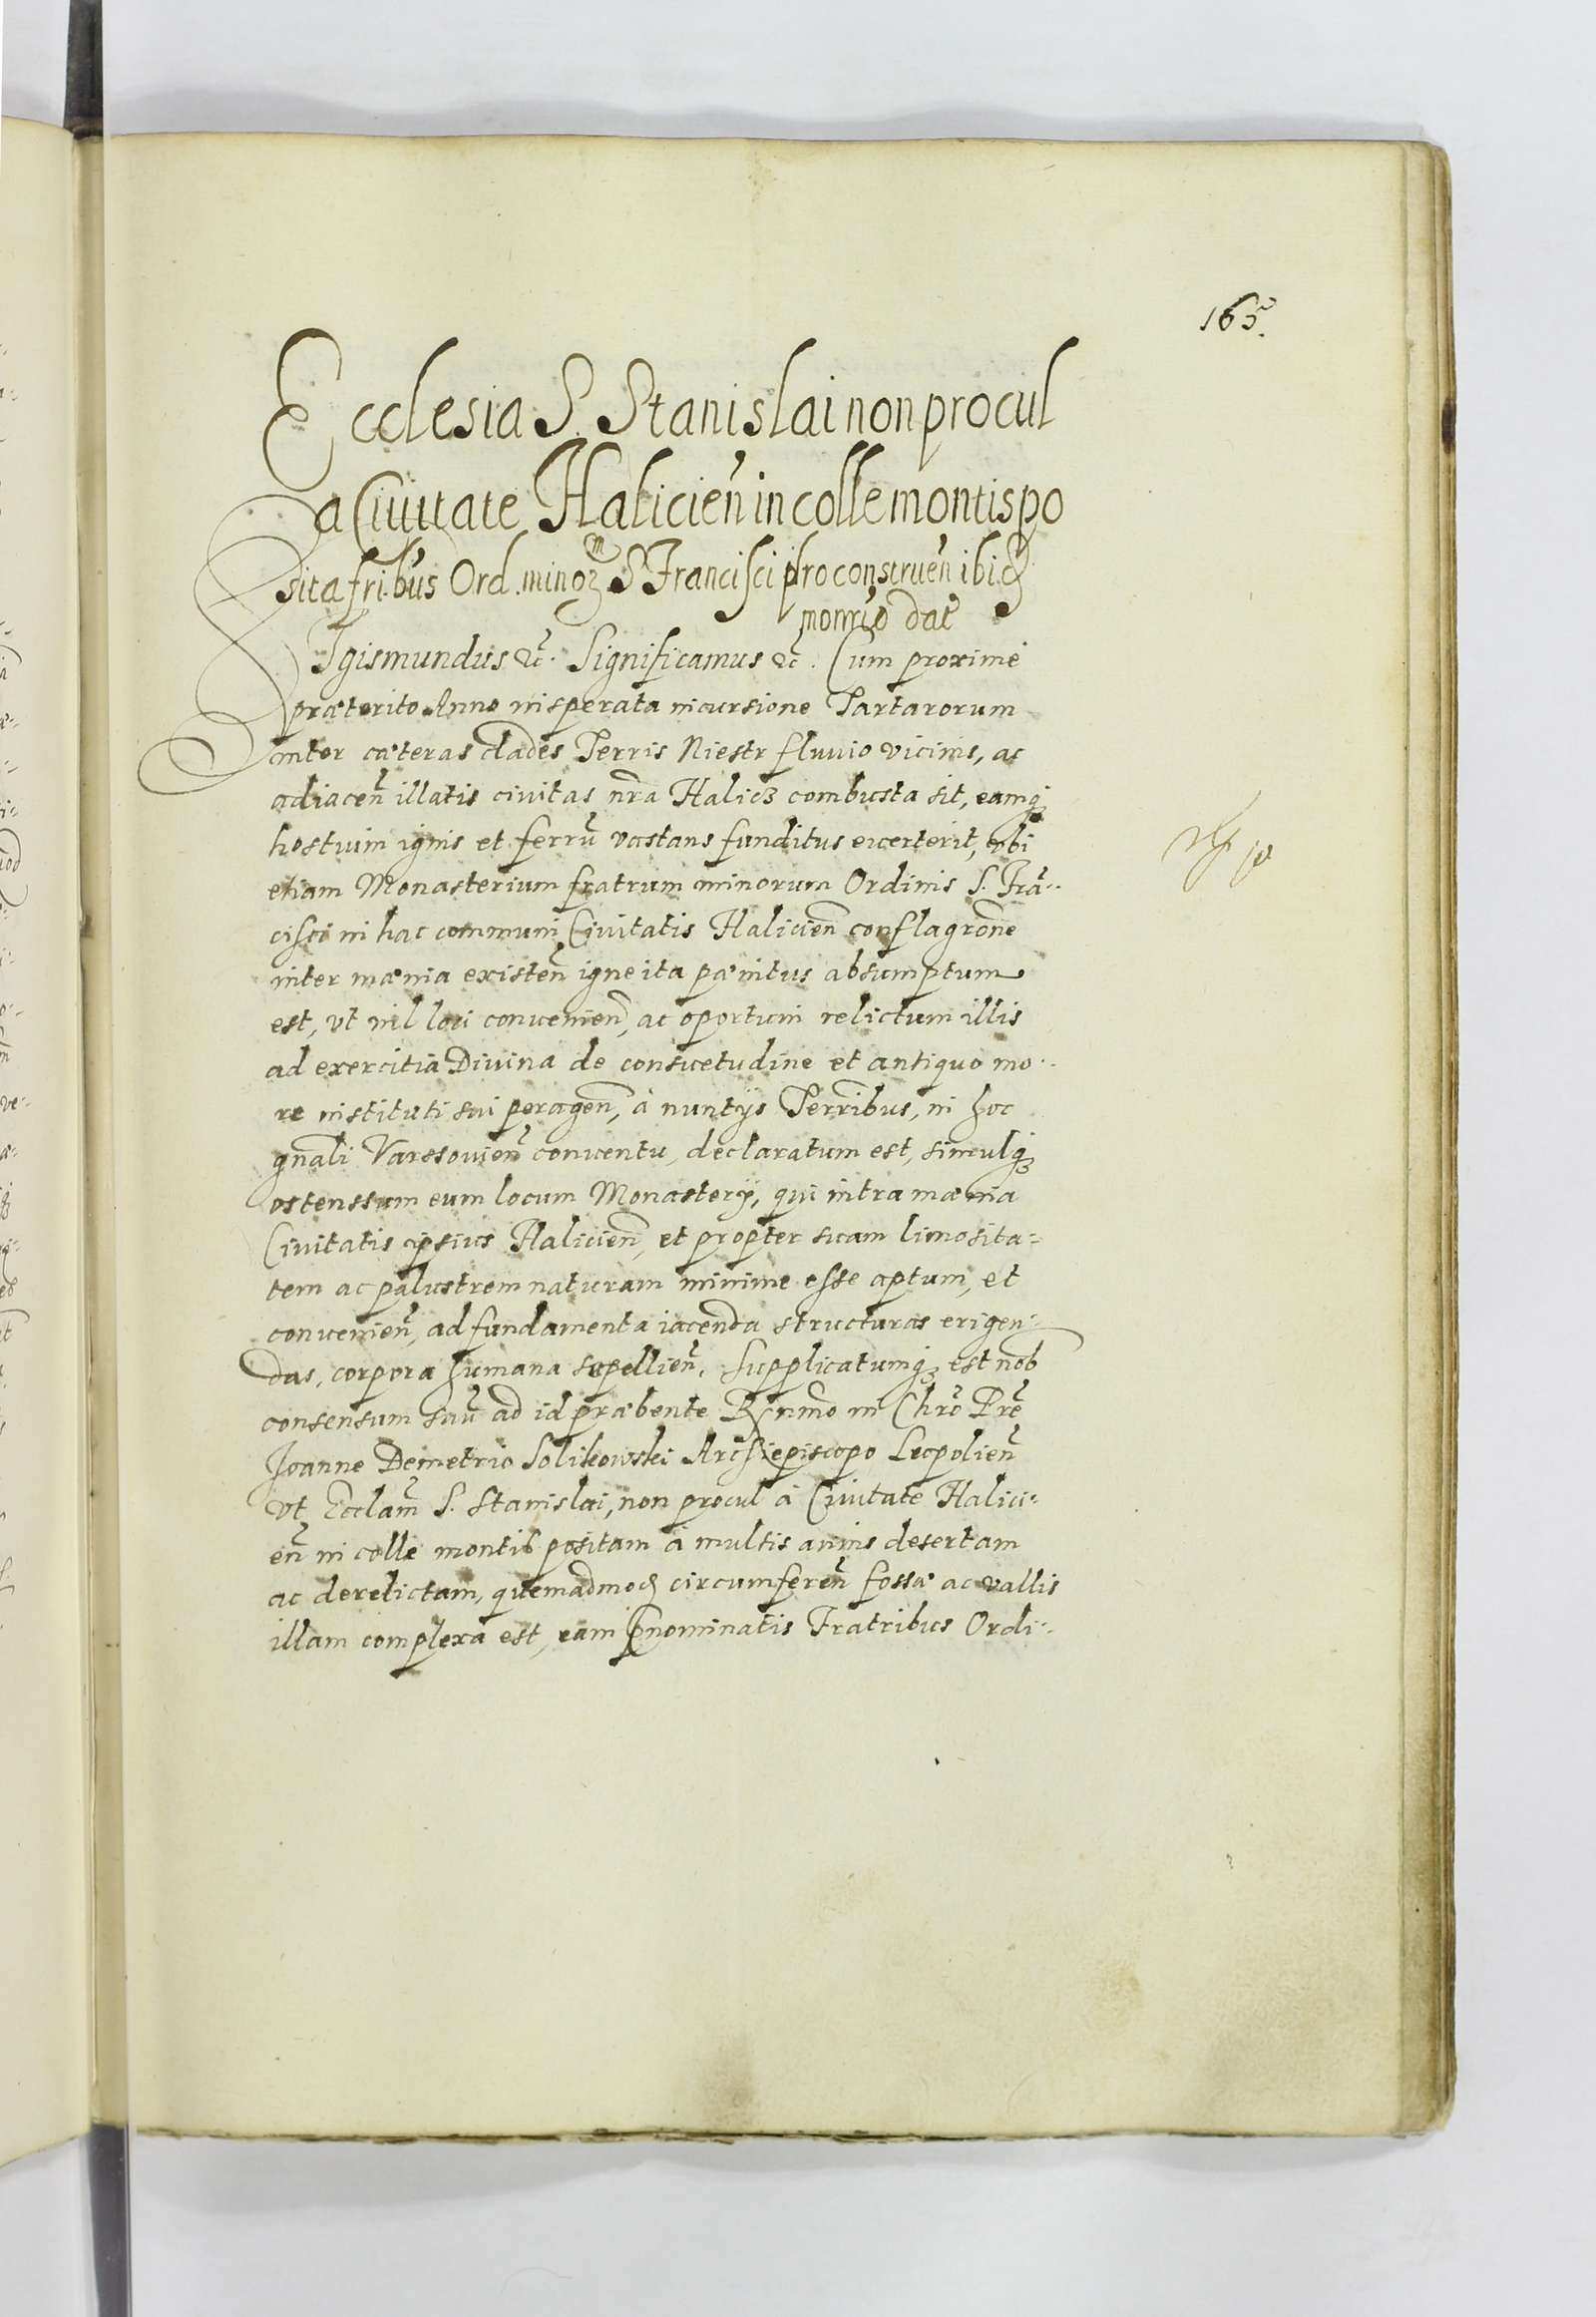 165.
Ecclesia S. Stanislai non procul
a Ciuitate Halicien̄ in colle montis po
sita frībus Ord. minoꝝ S Francisci pro construen̄ ibidꝫ
monr̄io dat̄
Sigismundus ꝛc̄. Significamus ꝛc̄. Cum proximè
præterito Anno insperata incursione Tartarorum
inter cæteras clades Terris Niestr fluvio vicinis, ac
adiacen̄ illatis civitas nr̄a Halicz combusta sit, eamqꝫ
hostium ignis et ferrū vastans funditus everterit, vbi
etiam Monasterium fratrum minorum Ordinis S. Frā-
cisci in hac communi Civitatis Halicien̄ conflagrōne
inter mænia existen̄ igne ita pænitus absumptum
est, vt nil loci convenien̄, ac oportuni relictum illis
ad exercitia Divina de consuetudine et antiquo mo-
re instituti sui peragen̄, à nuntijs Terr̄ibus, in hoc
gn̄ali Varssovien̄ conventu, declaratum est, simulqꝫ
ostenssum eum locum Monasterÿ, qui intra mænia
Civitatis ipsius Halicien̄, et propter suam limosita-
tem ac palustrem naturam minime esse aptum, et
convenien̄, ad fundamenta iacenda structuras erigen-
das, corpora humana sepellien̄. Supplicatumqꝫ est nob̄
consensum suū ad id præbente Rn̄dmo in Chrō Pr̄e
Joanne Demetrio Solikowski Archiepiscopo Leopolien̄
vt Eccl̄am S. Stanislai, non procul à Civitate Halici-
en̄ in colle montis positam à multis annis desertam
ac derelictam, quemadmodꝫ circumferen̄ fossæ ac vallis
illam complexa est, eam p̄nominatis Fratribus Ordi-